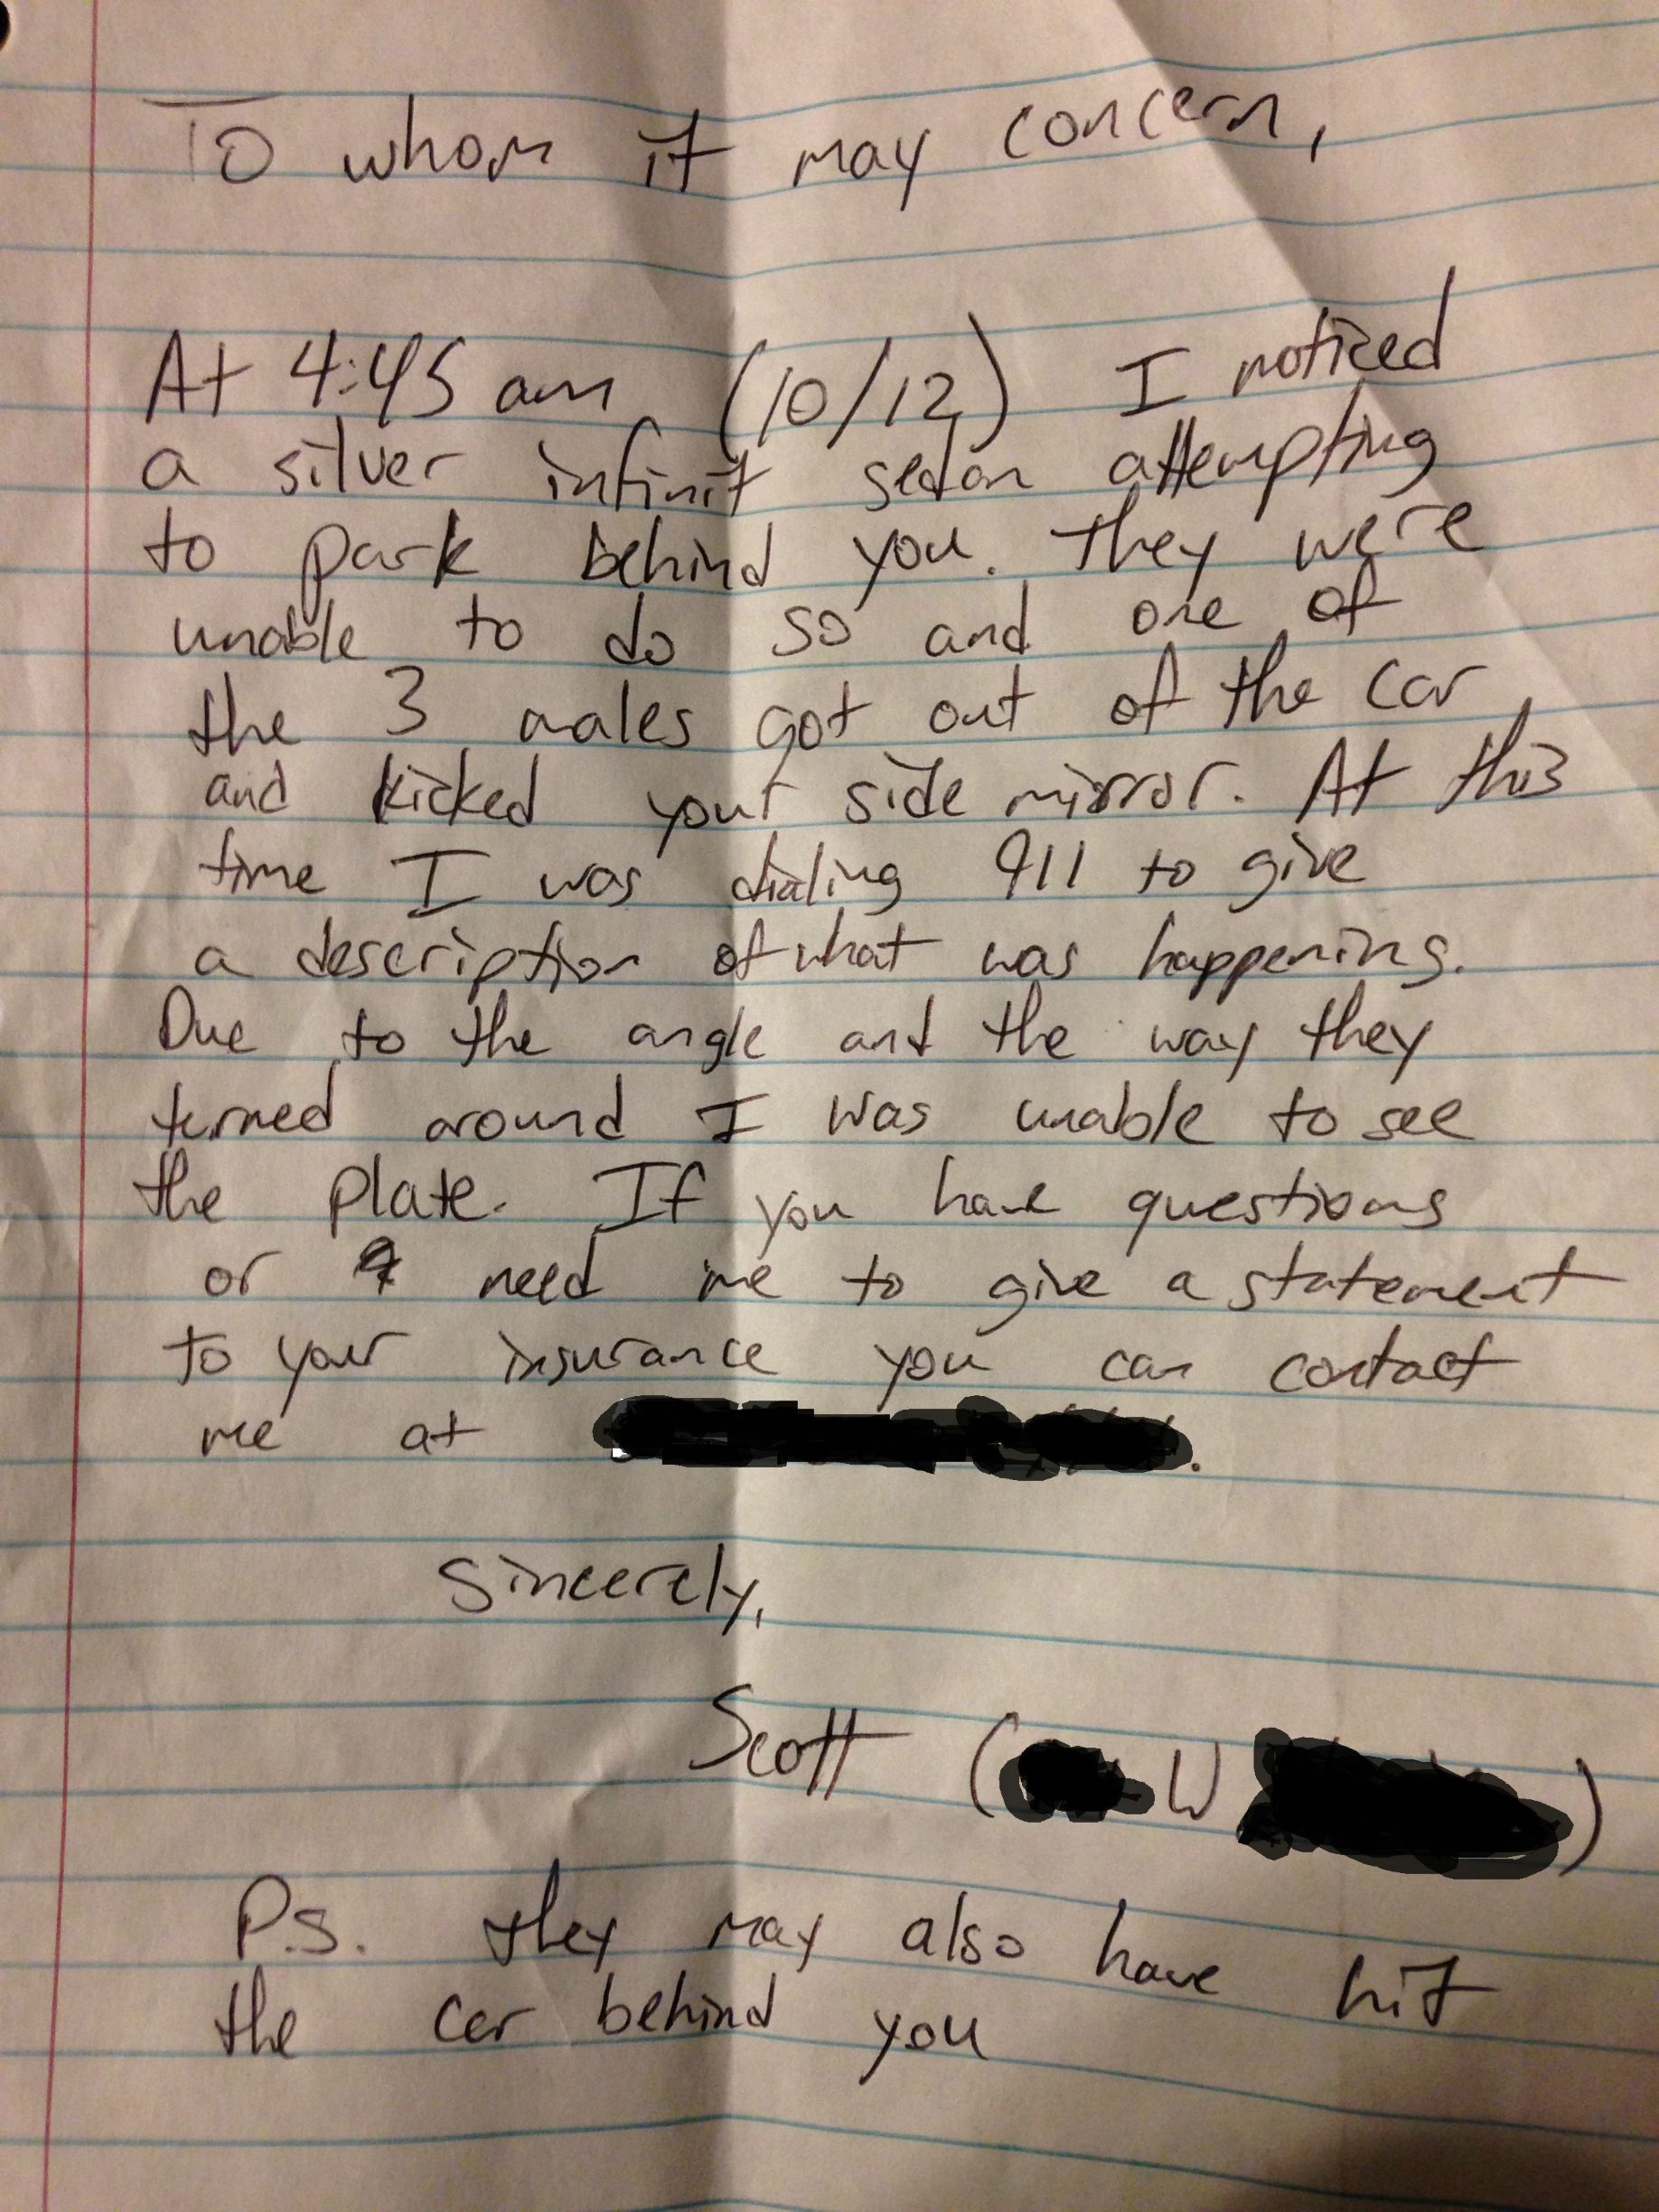 To whom it may concern,
At 4:45 am (10/12) I noticed
a silver infinit sedan attempting
to park behind you. They were
unable to do so and one of
the 3 males got out of the car
and kicked your side mirror. At this
time I was dialing 911 to give
a description of what was happening.
Due to the angle and the way they
turned around I was unable to see
the plate. If you have questions
or need me to give a statement
to your insurance you can contact
me at .
Sincerely,
Scott ( W )
P.S. they may also have hit
the car behind you